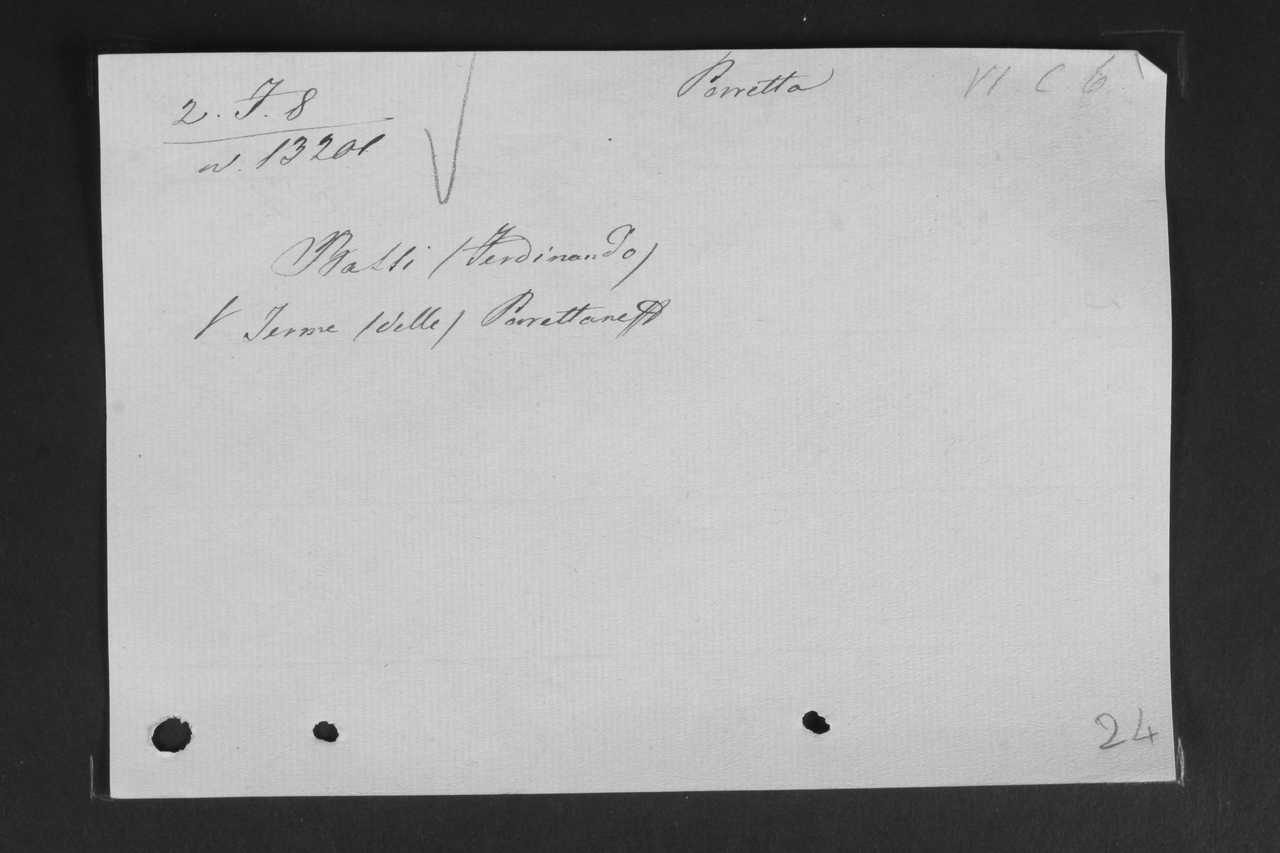 Porretta
VI C 6
2. F. 8
n. 13201
Bassi (Ferdinando)
V Terme (delle) Porrettane
24